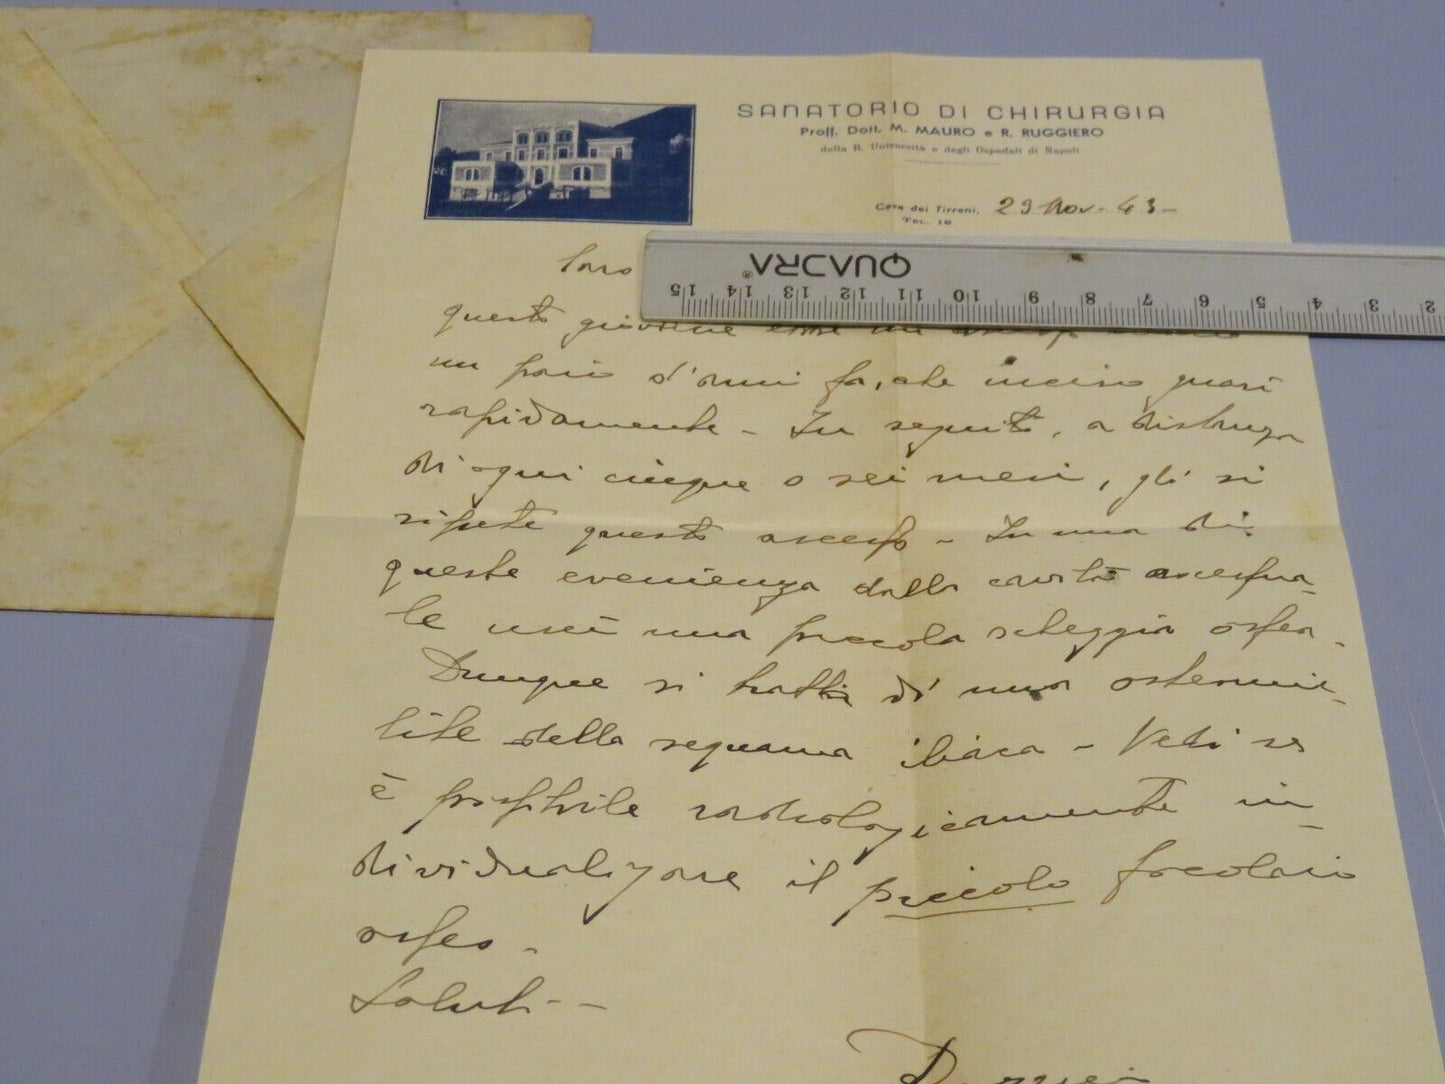 SANATORIO DI CHIRURGIA
Proff. Dott. M. MAURO e R. RUGGIERO
della R. Università e degli Ospedali di Napoli
Cava dei Tirreni, 29 Nov. 43 -
Tel. 19
Caro
QUADRA®
15 14 13 12 11 10 9 8 7 6 5 4 3 2
questo giovane ebbe un
un paio d'anni fa, che incise quasi
rapidamente - In seguito, a distanza
di ogni cinque o sei mesi, gli si
ripete questo ascesso - In una di
queste evenienze dalla cavità ascessua-
le uscì una piccola scheggia ossea -
Dunque si tratta di una osteomie-
lite della squama iliaca - Vedi se
è possibile radiologicamente in-
dividualizzare il piccolo focolaio
osseo -
Saluti -